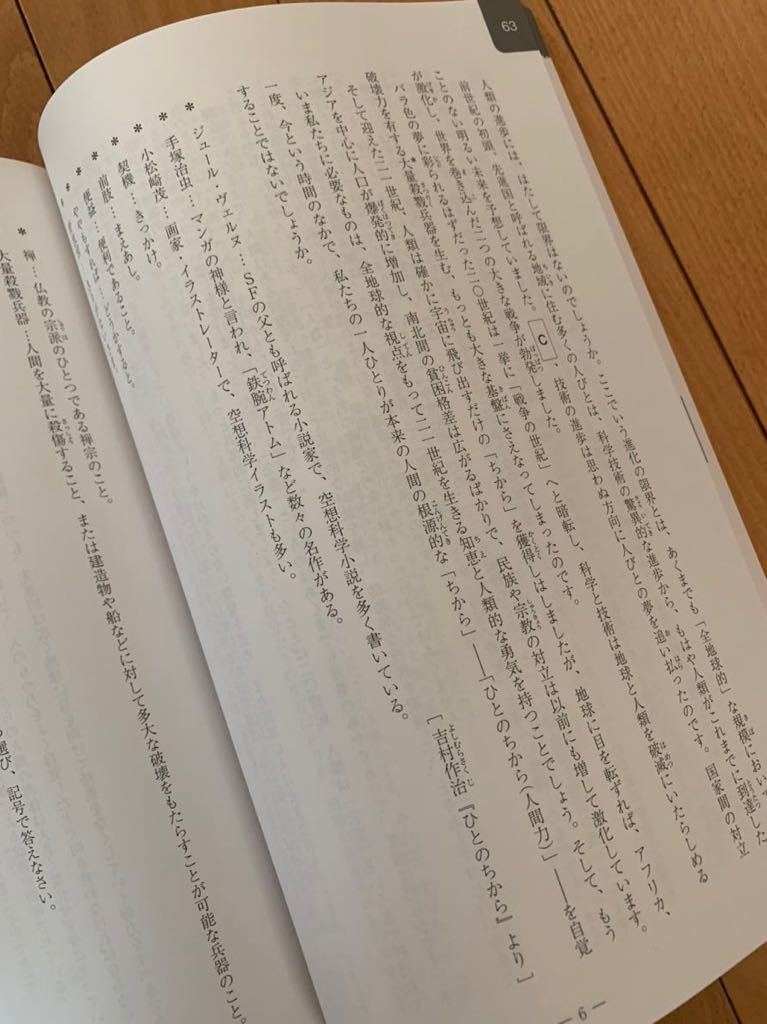 63
人類の進歩には、はたして限界はないのでしょうか。ここでいう進化の限界とは、あくまでも「全地球的」な規模において
前世紀の初頭、先進国と呼ばれる地域に住む多くの人びとは、科学技術の驚異的な進歩から、もはや人類がこれまでに到達した
ことのない明るい未来を予想していました。C、技術の進歩は思わぬ方向に人びとの夢を追い払ったのです。国家間の対立
が激化し、世界を巻き込んだ二つの大きな戦争が勃発しました。
バラ色の夢に彩られるはずだった二〇世紀は一挙に「戦争の世紀」へと暗転し、科学と技術は地球と人類を破滅にいたらしめる
破壊力を有する*大量殺戮兵器を生む、もっとも大きな基盤にさえなってしまったのです。
そして迎えた二一世紀、人類は確かに宇宙に飛び出すだけの「ちから」を獲得しはしましたが、地球に目を転ずれば、アフリカ、
アジアを中心に人口が爆発的に増加し、南北間の貧困格差は広がるばかりで、民族や宗教の対立は以前にも増して激化しています。
いま私たちに必要なものは、全地球的な視点をもって二一世紀を生きる知恵と人類的な勇気を持つことでしょう。そして、もう
一度、今という時間のなかで、私たちの一人ひとりが本来の人間の根源的な「ちから」――「ひとのちから(人間力)」――を自覚
することではないでしょうか。
[吉村作治『ひとのちから』より]
* ジュール・ヴェルヌ…SFの父とも呼ばれる小説家で、空想科学小説を多く書いている。
* 手塚治虫…マンガの神様と言われ、「鉄腕アトム」など数々の名作がある。
* 小松崎茂…画家・イラストレーターで、空想科学イラストも多い。
* 契機…きっかけ。
* 前肢…まえあし。
* 便益…便利であること。
* ややもすれば…どうかすると。
* 禅…仏教の宗派のひとつである禅宗のこと。
大量殺戮兵器…人間を大量に殺傷すること、または建造物や船などに対して多大な破壊をもたらすことが可能な兵器のこと。
選び、記号で答えなさい。
— 6 —